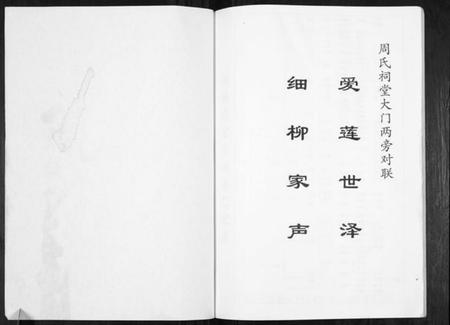 周氏祠堂大门两旁对联
爱莲世泽
细柳家声